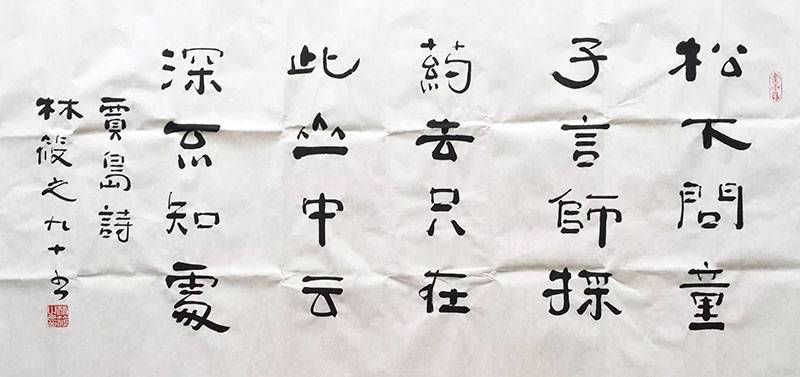 松不問童
子言師採
葯去只在
此山中云
深不知處
賈島詩
林筱之九十书